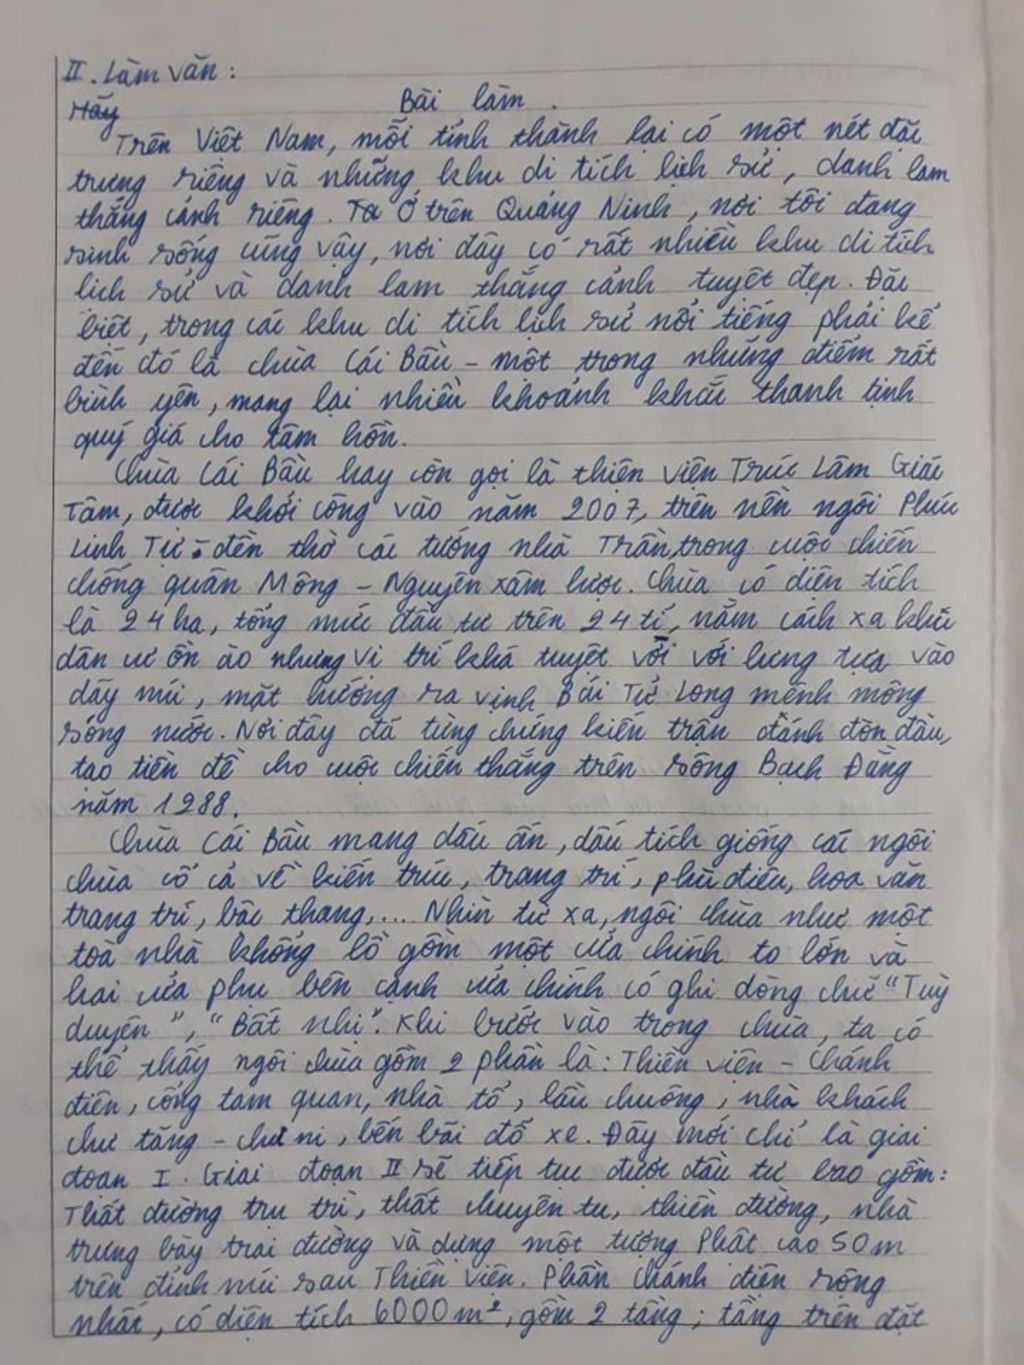 II. Làm văn :
Hãy
Bài làm .
Trên Việt Nam, mỗi tỉnh thành lại có một nét đặc
trưng riêng và những khu di tích lịch sử, danh lam
thắng cảnh riêng. Ta Ở trên Quảng Ninh, nơi tôi đang
sinh sống cũng vậy, nơi đây có rất nhiều khu di tích
lịch sử và danh lam thắng cảnh tuyệt đẹp. Đặc
biệt, trong các khu di tích lịch sử nổi tiếng phải kể
đến đó là chùa Cái Bầu – một trong những điểm rất
bình yên, mang lại nhiều khoảnh khắc thanh tịnh
quý giá cho tâm hồn.
Chùa Cái Bầu hay còn gọi là thiền viện Trúc Lâm Giác
Tâm, được khởi công vào năm 2007, trên nền ngôi Phúc
Linh Tự - đền thờ các tướng nhà Trần trong cuộc chiến
chống quân Mông – Nguyên xâm lược. Chùa có diện tích
là 24 ha, tổng mức đầu tư trên 24 tỉ, nằm cách xa khu
dân cư ồn ào nhưng vị trí khá tuyệt vời với lưng tựa vào
dãy núi, mặt hướng ra vịnh Bái Tử Long mênh mông
sóng nước. Nơi đây đã từng chứng kiến trận đánh đồn đầu,
tạo tiền đề cho cuộc chiến thắng trên sông Bạch Đằng
năm 1288.
Chùa Cái Bầu mang dấu ấn, dấu tích giống các ngôi
chùa cổ cả về kiến trúc, trang trí, phù điêu, hoa văn
trang trí, bậc thang,... Nhìn từ xa, ngôi chùa như một
toà nhà khổng lồ gồm một cửa chính to lớn và
hai cửa phụ bên cạnh cửa chính có ghi dòng chữ "Tuỳ
duyên", "Bất nhị". Khi bước vào trong chùa, ta có
thể thấy ngôi chùa gồm 2 phần là: Thiền viện – Chánh
điện, cổng tam quan, nhà tổ, lầu chuông, nhà khách
chư tăng – chư ni, bến bãi đỗ xe. Đây mới chỉ là giai
đoạn I. Giai đoạn II sẽ tiếp tục được đầu tư bao gồm:
Thất đường trụ trì, thất chuyên tu, thiền đường, nhà
trưng bày trai đường và dựng một tượng Phật cao 50m
trên đỉnh núi sau Thiền viện. Phần chánh điện rộng
nhất, có diện tích 6000m², gồm 2 tầng; tầng trên đặt